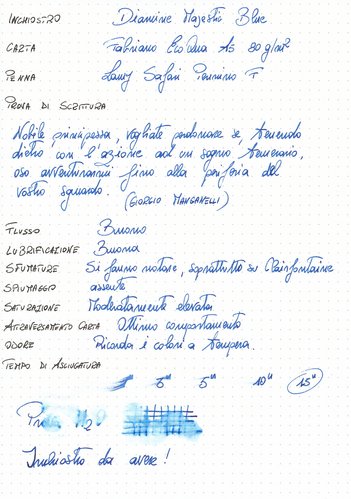 INCHIOSTRO Diamine Majestic Blue
CARTA Fabriano EcoQua A5 80 g/m²
PENNA Lamy Safari Pennino F
PROVA DI SCRITTURA
Nobile principessa, vogliate perdonare se, tenendo
dietro con l'azione ad un sogno temerario,
oso avventurarmi fino alla periferia del
vostro sguardo. (GIORGIO MANGANELLI)
FLUSSO Buono
LUBRIFICAZIONE Buona
SFUMATURE Si fanno notare, soprattutto su Clairefontaine
SPIUMAGGIO assente
SATURAZIONE Moderatamente elevata
ATTRAVERSAMENTO CARTA Ottimo comportamento
ODORE Ricorda i colori a tempera.
TEMPO DI ASCIUGATURA
5" 10" 15"
Prova H2O
Inchiostro da avere!